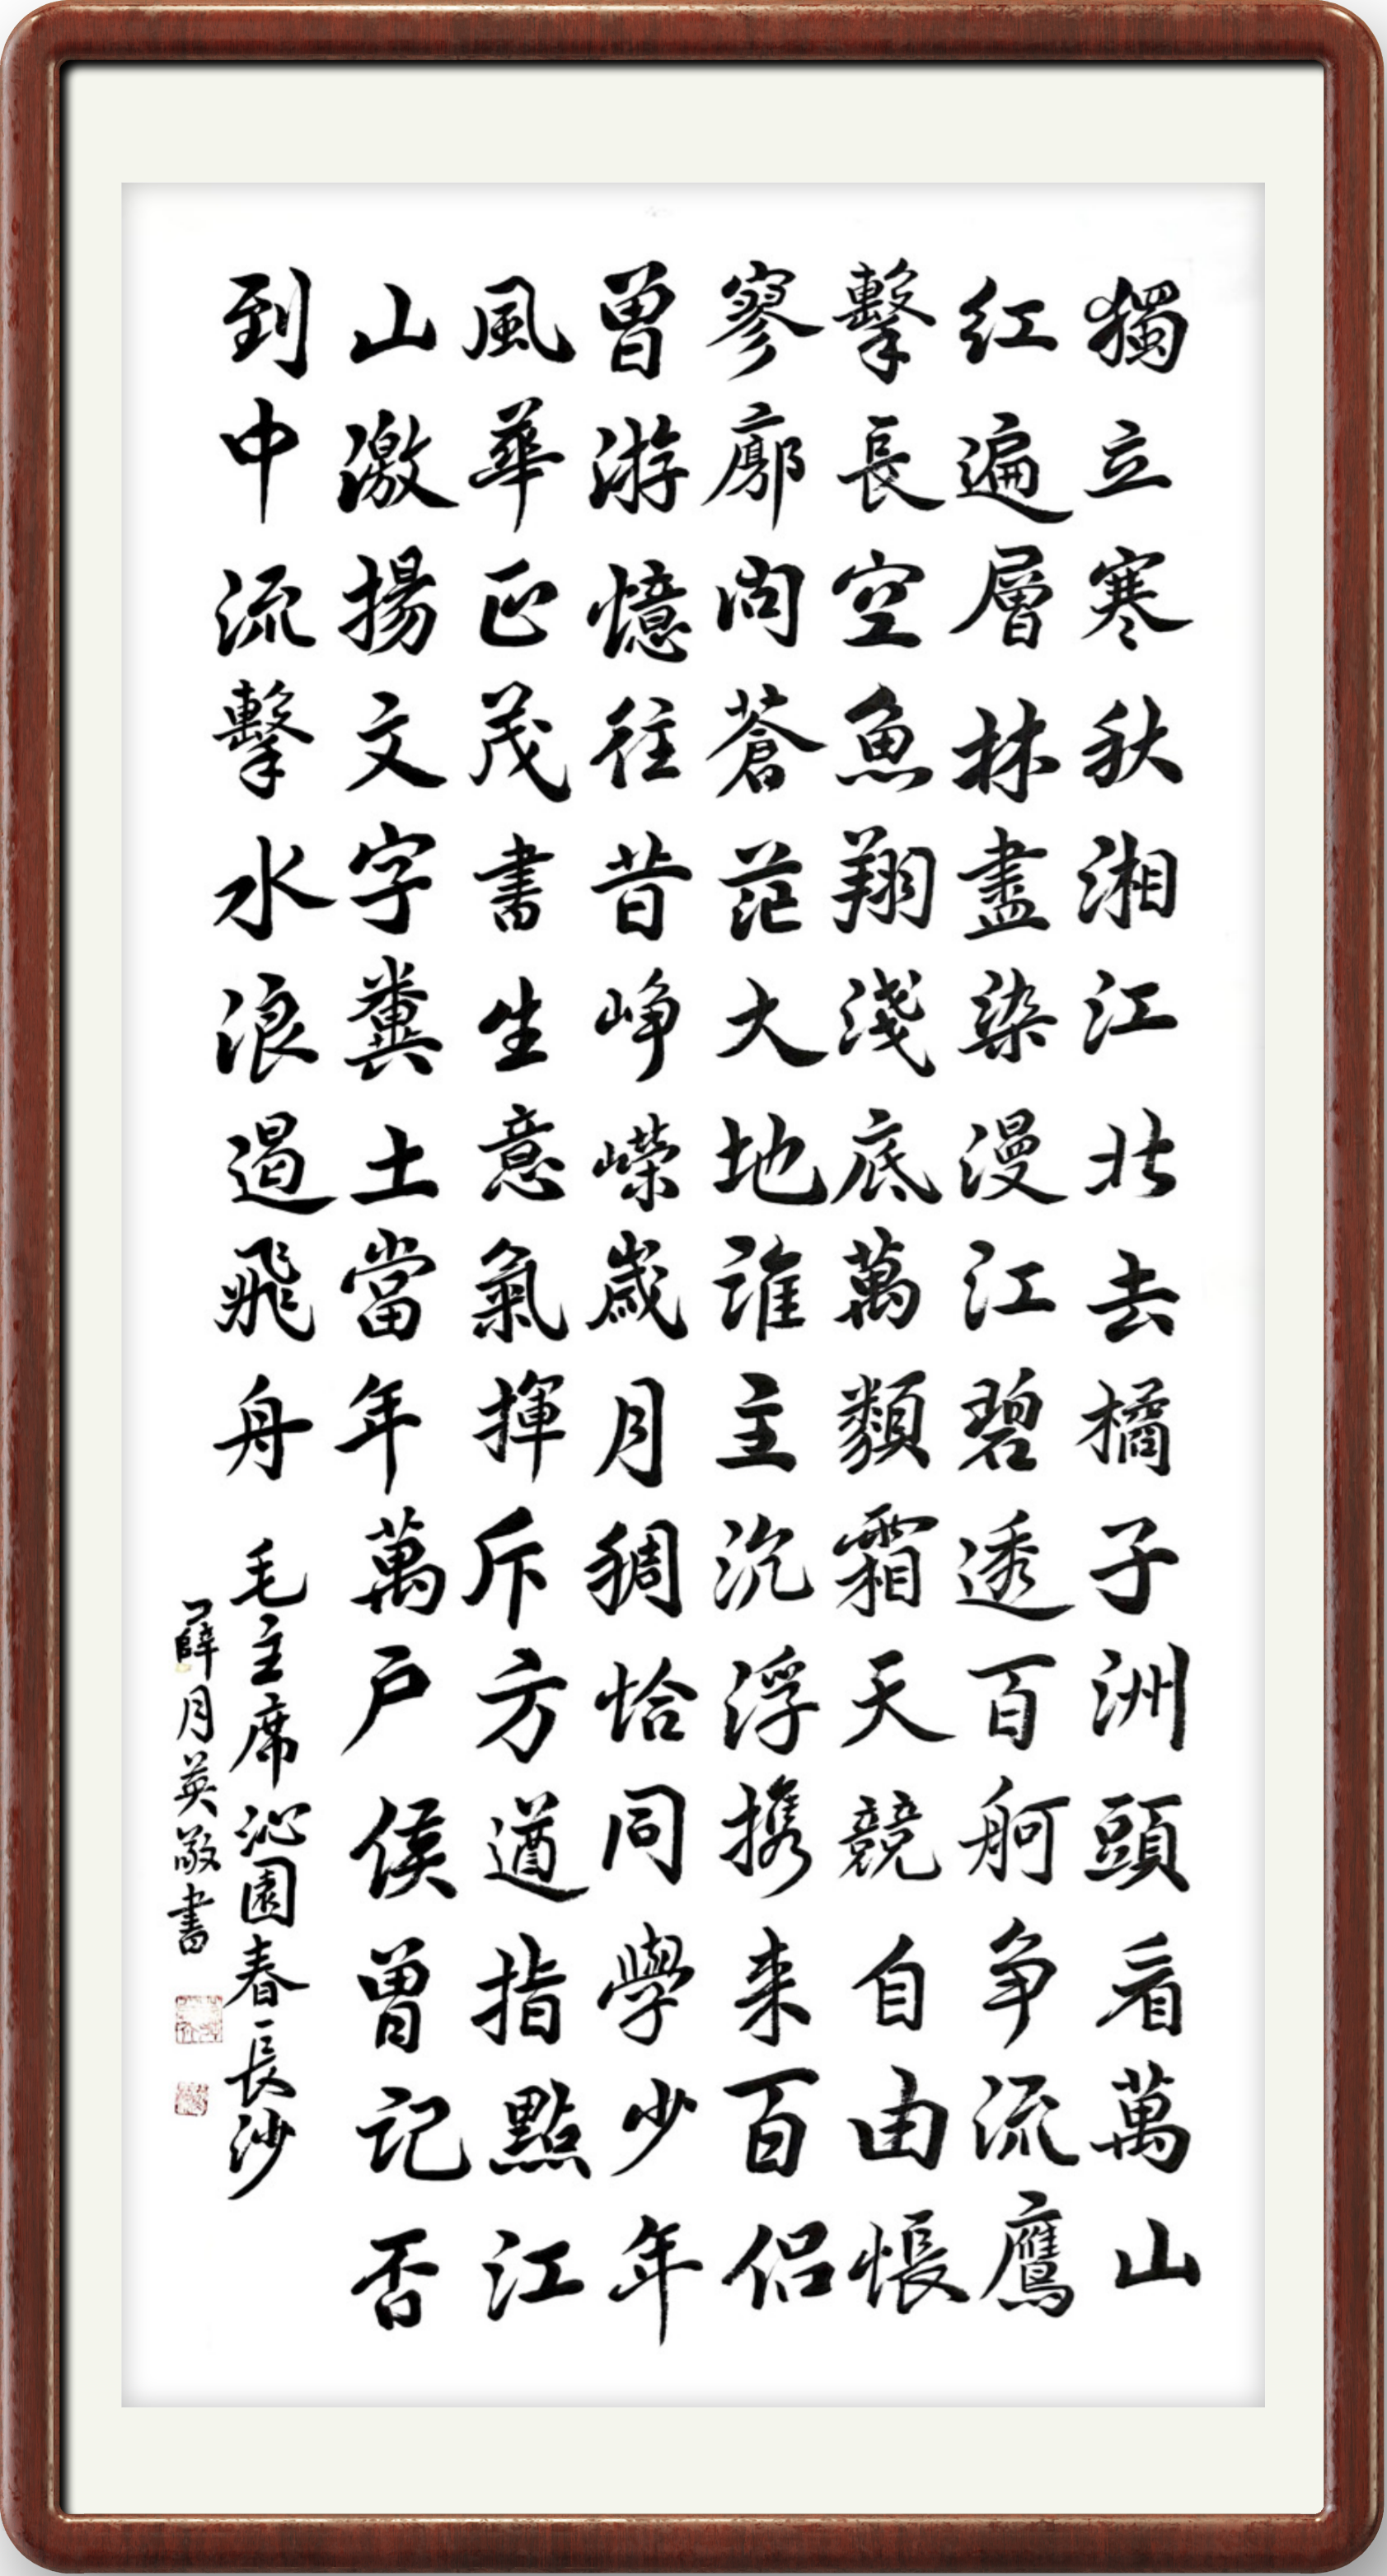 獨立寒秋湘江北去橘子洲頭看萬山
红遍層林盡染漫江碧透百舸争流鷹
擊長空魚翔淺底萬類霜天競自由悵
寥廓問蒼茫大地誰主沉浮携来百侣
曾游憶往昔峥嶸歲月稠恰同學少年
風華正茂書生意氣揮斥方遒指點江
山激揚文字糞土當年萬户侯曾記否
到中流擊水浪遏飛舟 毛主席沁園春長沙
薛月英敬書